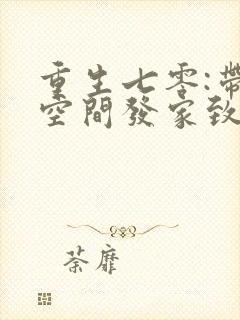 重生七零:帶
空間發家致
荼靡